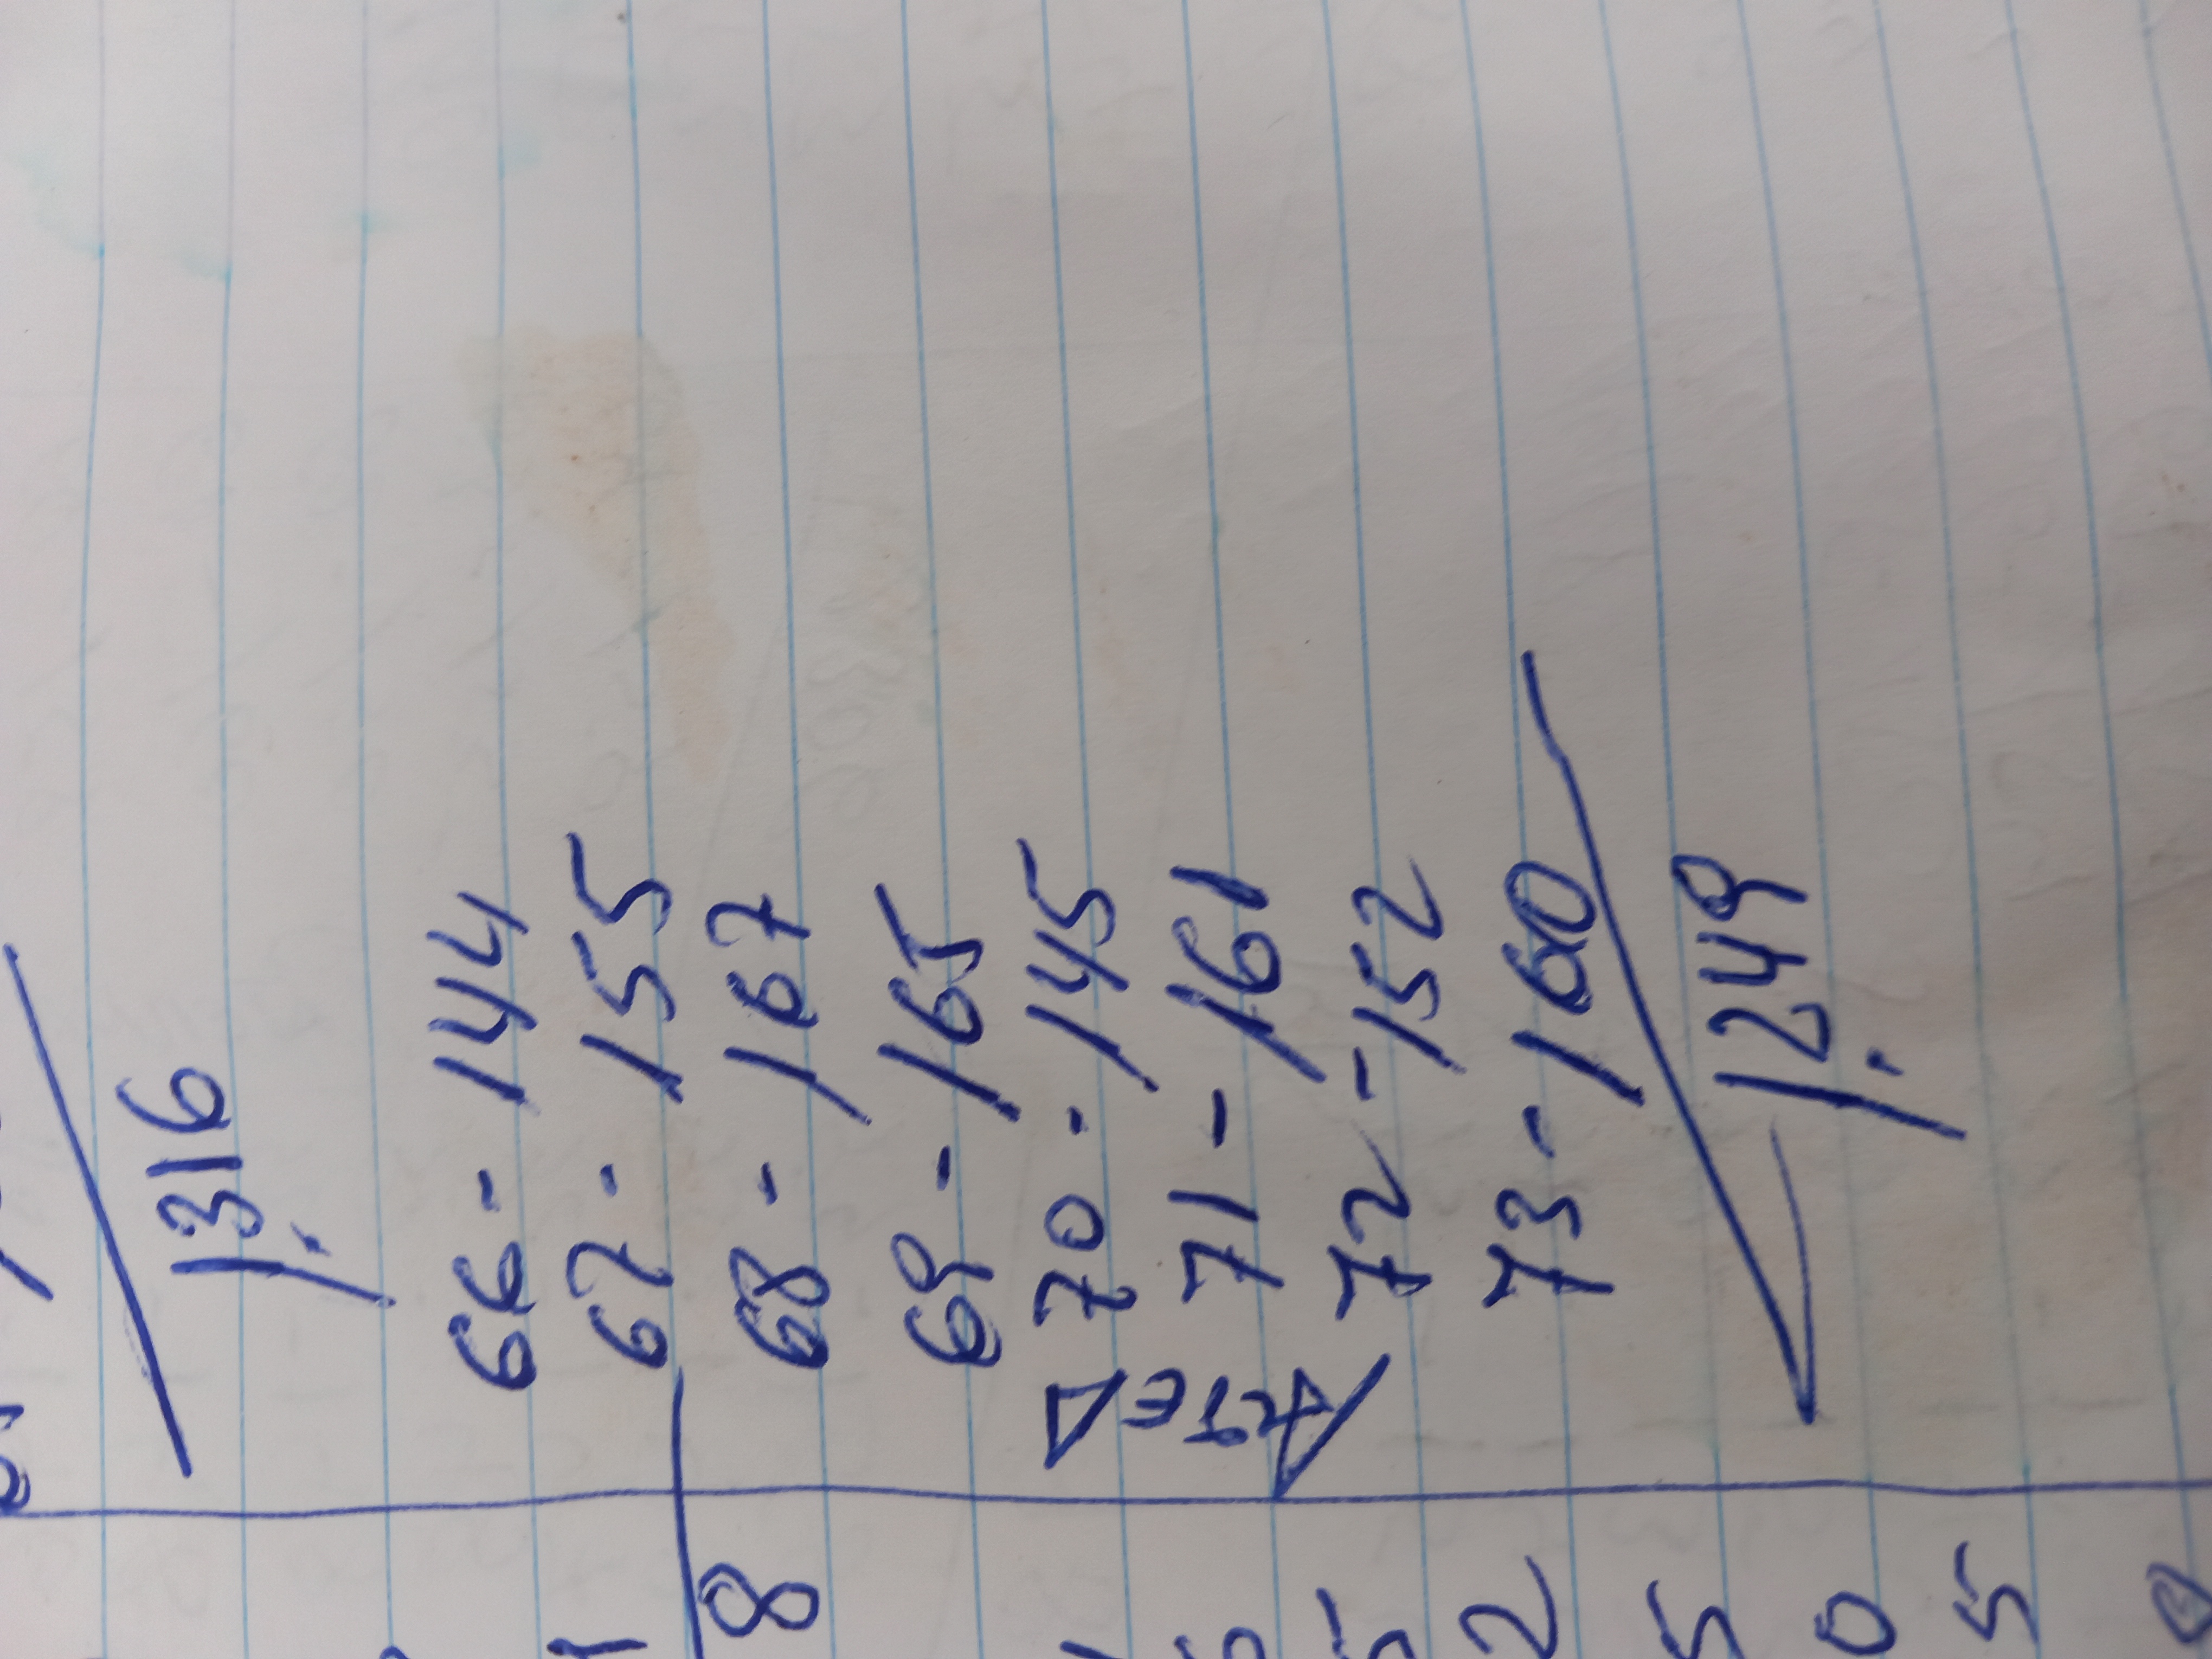 8
2
5
0
5
1.316
66 - 144
67 - 155
68 - 167
69 - 165
70 - 145
71 - 161
72 - 152
73 - 160
1.249